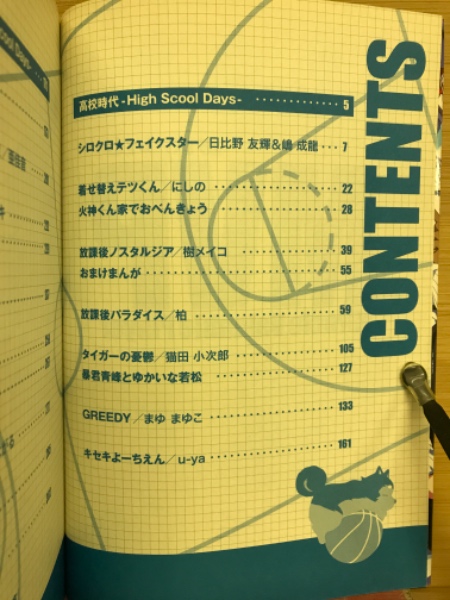 CONTENTS
高校時代 -High Scool Days- ・・・・・・・・・・・・ 5
シロクロ★フェイクスター／日比野 友輝＆嶋 成龍 ・・・ 7
着せ替えテツくん／にしの ・・・・・・・・・・・・・・・・・・ 22
火神くん家でおべんきょう ・・・・・・・・・・・・・・・・・ 28
放課後ノスタルジア／樹メイコ ・・・・・・・・・・・・・・ 39
おまけまんが ・・・・・・・・・・・・・・・・・・・・・・・・・・・・ 55
放課後パラダイス／柏 ・・・・・・・・・・・・・・・・・・・・・ 59
タイガーの憂鬱／猫田 小次郎 ・・・・・・・・・・・・・・・ 105
暴君青峰とゆかいな若松 ・・・・・・・・・・・・・・・・・・ 127
GREEDY／まゆ まゆこ ・・・・・・・・・・・・・・・・・・・・ 133
キセキよーちえん／u-ya ・・・・・・・・・・・・・・・・・・・ 161